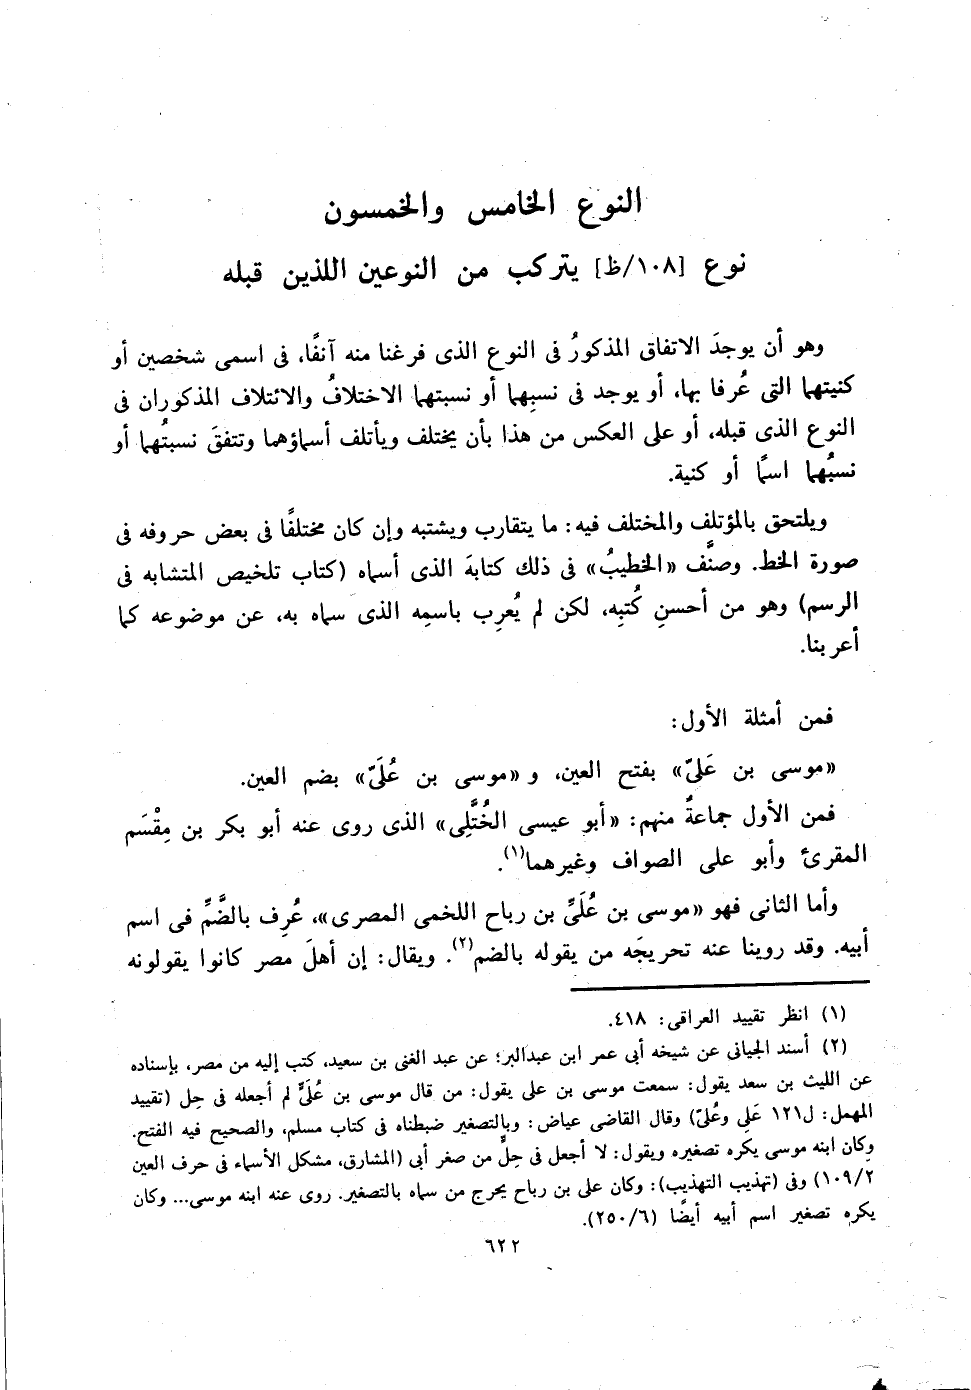 النوع الخامس والخمسون
نوع [١٠٨/ظ] يتركب من النوعين اللذين قبله
وهو أن يوجدَ الاتفاق المذكورُ فى النوع الذى فرغنا منه آنفًا، فى اسمى شخصين أو
كنيتهما التى عُرفا بها، أو يوجد فى نسبِهما أو نسبتهما الاختلافُ والائتلاف المذكوران فى
النوع الذى قبله، أو على العكس من هذا بأن يختلف ويأتلف أسماؤهما وتتفقَ نسبتُهما أو
نسبُهما اسمًا أو كنية.
ويلتحق بالمؤتلف والمختلف فيه: ما يتقارب ويشتبه وإن كان مختلفًا فى بعض حروفه فى
صورة الخط. وصنَّف «الخطيبُ» فى ذلك كتابهَ الذى أسماه (كتاب تلخيص المتشابه فى
الرسم) وهو من أحسنِ كُتبِه، لكن لم يُعرِب باسمِه الذى سماه به، عن موضوعه كما
أعربنا.
فمن أمثلة الأول:
«موسى بن عَلىّ» بفتح العين، و «موسى بن عُلَىّ» بضم العين.
فمن الأول جماعةٌ منهم: «أبو عيسى الخُتَّلِى» الذى روى عنه أبو بكر بن مِقْسَم
المقرئ وأبو على الصواف وغيرهما(١).
وأما الثانى فهو «موسى بن عُلَىِّ بن رباح اللخمى المصرى»، عُرِف بالضَّمِّ فى اسم
أبيه. وقد روينا عنه تحريجَه من يقوله بالضم(٢). ويقال: إن أهلَ مصر كانوا يقولونه
(١) انظر تقييد العراقى: ٤١٨.
(٢) أسند الجيانى عن شيخه أبى عمر ابن عبدالبر؛ عن عبد الغنى بن سعيد، كتب إليه من مصر، بإسناده
عن الليث بن سعد يقول: سمعت موسى بن على يقول: من قال موسى بن عُلَىٍّ لم أجعله فى حِل (تقييد
المهمل: ل١٢١ عَلى وعُلىّ) وقال القاضى عياض: وبالتصغير ضبطناه فى كتاب مسلم، والصحيح فيه الفتح.
وكان ابنه موسى يكره تصغيره ويقول: لا أجعل فى حِلٍّ من صغر أبى (المشارق، مشكل الأسماء فى حرف العين
١٠٩/٢) وفى (تهذيب التهذيب): وكان على بن رباح يحرج من سماه بالتصغير. روى عنه ابنه موسى... وكان
يكره تصغير اسم أبيه أيضًا (٢٥٠/٦).
٦٢٢